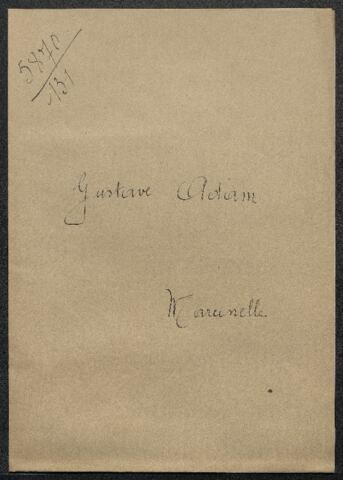 5870
131
Gustave Adam
Marcinelle